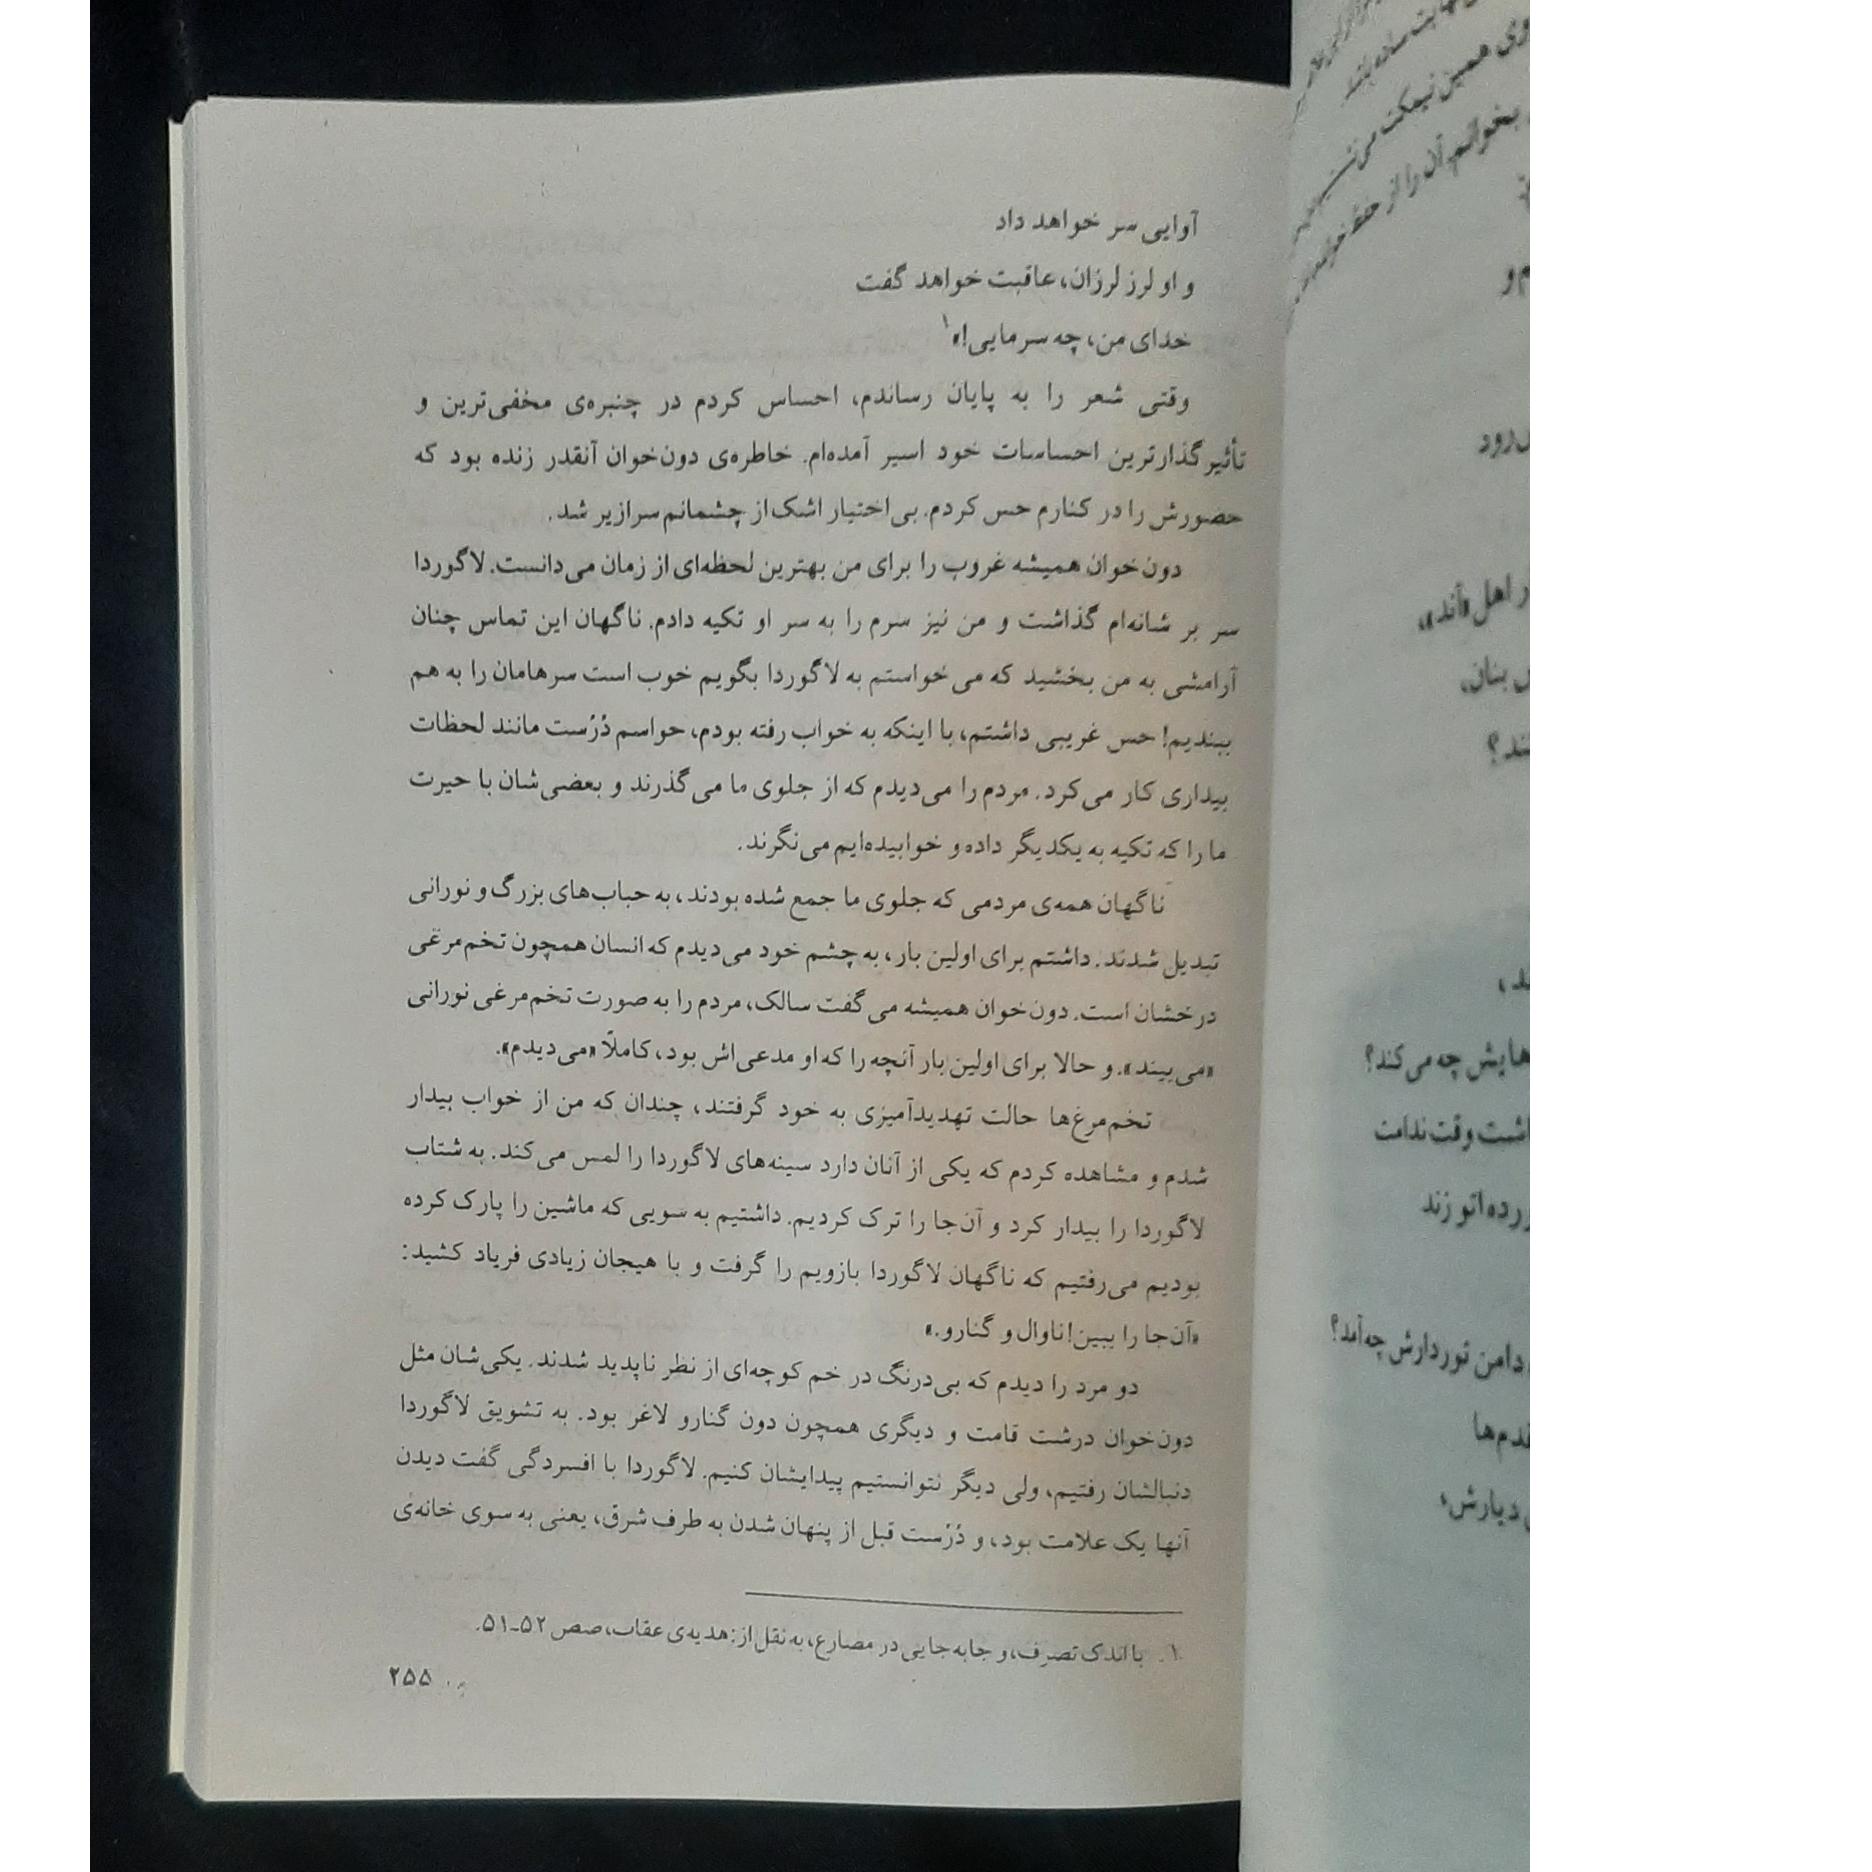 آوایی سر خواهد داد
و او لرز لرزان، عاقبت خواهد گفت
خدای من، چه سرمایی!»۱
وقتی شعر را به پایان رساندم، احساس کردم در چنبره‌ی مخفی‌ترین و
تأثیرگذارترین احساسات خود اسیر آمده‌ام. خاطره‌ی دون‌خوان آنقدر زنده بود که
حضورش را در کنارم حس کردم. بی‌اختیار اشک از چشمانم سرازیر شد.
دون‌خوان همیشه غروب را برای من بهترین لحظه‌ای از زمان می‌دانست. لاگوردا
سر بر شانه‌ام گذاشت و من نیز سرم را به سر او تکیه دادم. ناگهان این تماس چنان
آرامشی به من بخشید که می‌خواستم به لاگوردا بگویم خوب است سرهامان را به هم
ببندیم! حس غریبی داشتم، با اینکه به خواب رفته بودم، حواسم دُرُست مانند لحظات
بیداری کار می‌کرد. مردم را می‌دیدم که از جلوی ما می‌گذرند و بعضی‌شان با حیرت
ما را که تکیه به یکدیگر داده و خوابیده‌ایم می‌نگرند.
ناگهان همه‌ی مردمی که جلوی ما جمع شده بودند، به حباب‌های بزرگ و نورانی
تبدیل شدند. داشتم برای اولین بار، به چشم خود می‌دیدم که انسان همچون تخم‌مرغی
درخشان است. دون‌خوان همیشه می‌گفت سالک، مردم را به صورت تخم‌مرغی نورانی
«می‌بیند». و حالا برای اولین بار آنچه را که او مدعی‌اش بود، کاملاً «می‌دیدم».
تخم‌مرغ‌ها حالت تهدیدآمیزی به خود گرفتند، چندان که من از خواب بیدار
شدم و مشاهده کردم که یکی از آنان دارد سینه‌های لاگوردا را لمس می‌کند. به شتاب
لاگوردا را بیدار کرد و آن‌جا را ترک کردیم. داشتیم به سویی که ماشین را پارک کرده
بودیم می‌رفتیم که ناگهان لاگوردا بازویم را گرفت و با هیجان زیادی فریاد کشید:
«آن‌جا را ببین! ناوال و گنارو.»
دو مرد را دیدم که بی‌درنگ در خم کوچه‌ای از نظر ناپدید شدند. یکی‌شان مثل
دون‌خوان درشت قامت و دیگری همچون دون گنارو لاغر بود. به تشویق لاگوردا
دنبالشان رفتیم، ولی دیگر نتوانستیم پیدایشان کنیم. لاگوردا با افسردگی گفت دیدن
آنها یک علامت بود، و دُرُست قبل از پنهان شدن به طرف شرق، یعنی به سوی خانه‌ی
۱. با اندک تصرف، و جابه‌جایی در مصارع، به نقل از: هدیه‌ی عقاب، صص ۵۲-۵۱.
۲۵۵
وی همین نیمکت می‌نشینیم
بخوانم. آن را از حفظ
م و
اهل «آند»،
بنان،
هایش چه می‌کند؟
وقت ندامت
اتو زند
دامن توردارش چه آمد؟
دیارش،